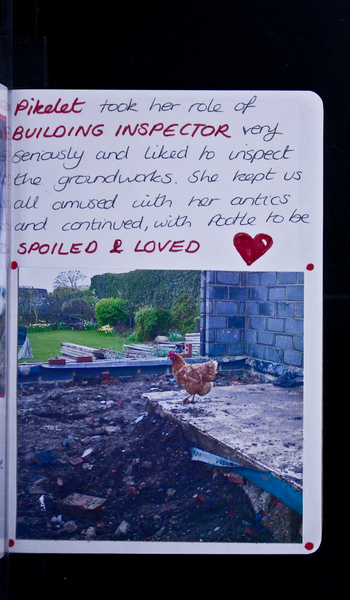 Pikelet took her role of
BUILDING INSPECTOR very
seriously and liked to inspect
the groundworks. She kept us
all amused with her antics
and continued, with Pootle to be
SPOILED & LOVED